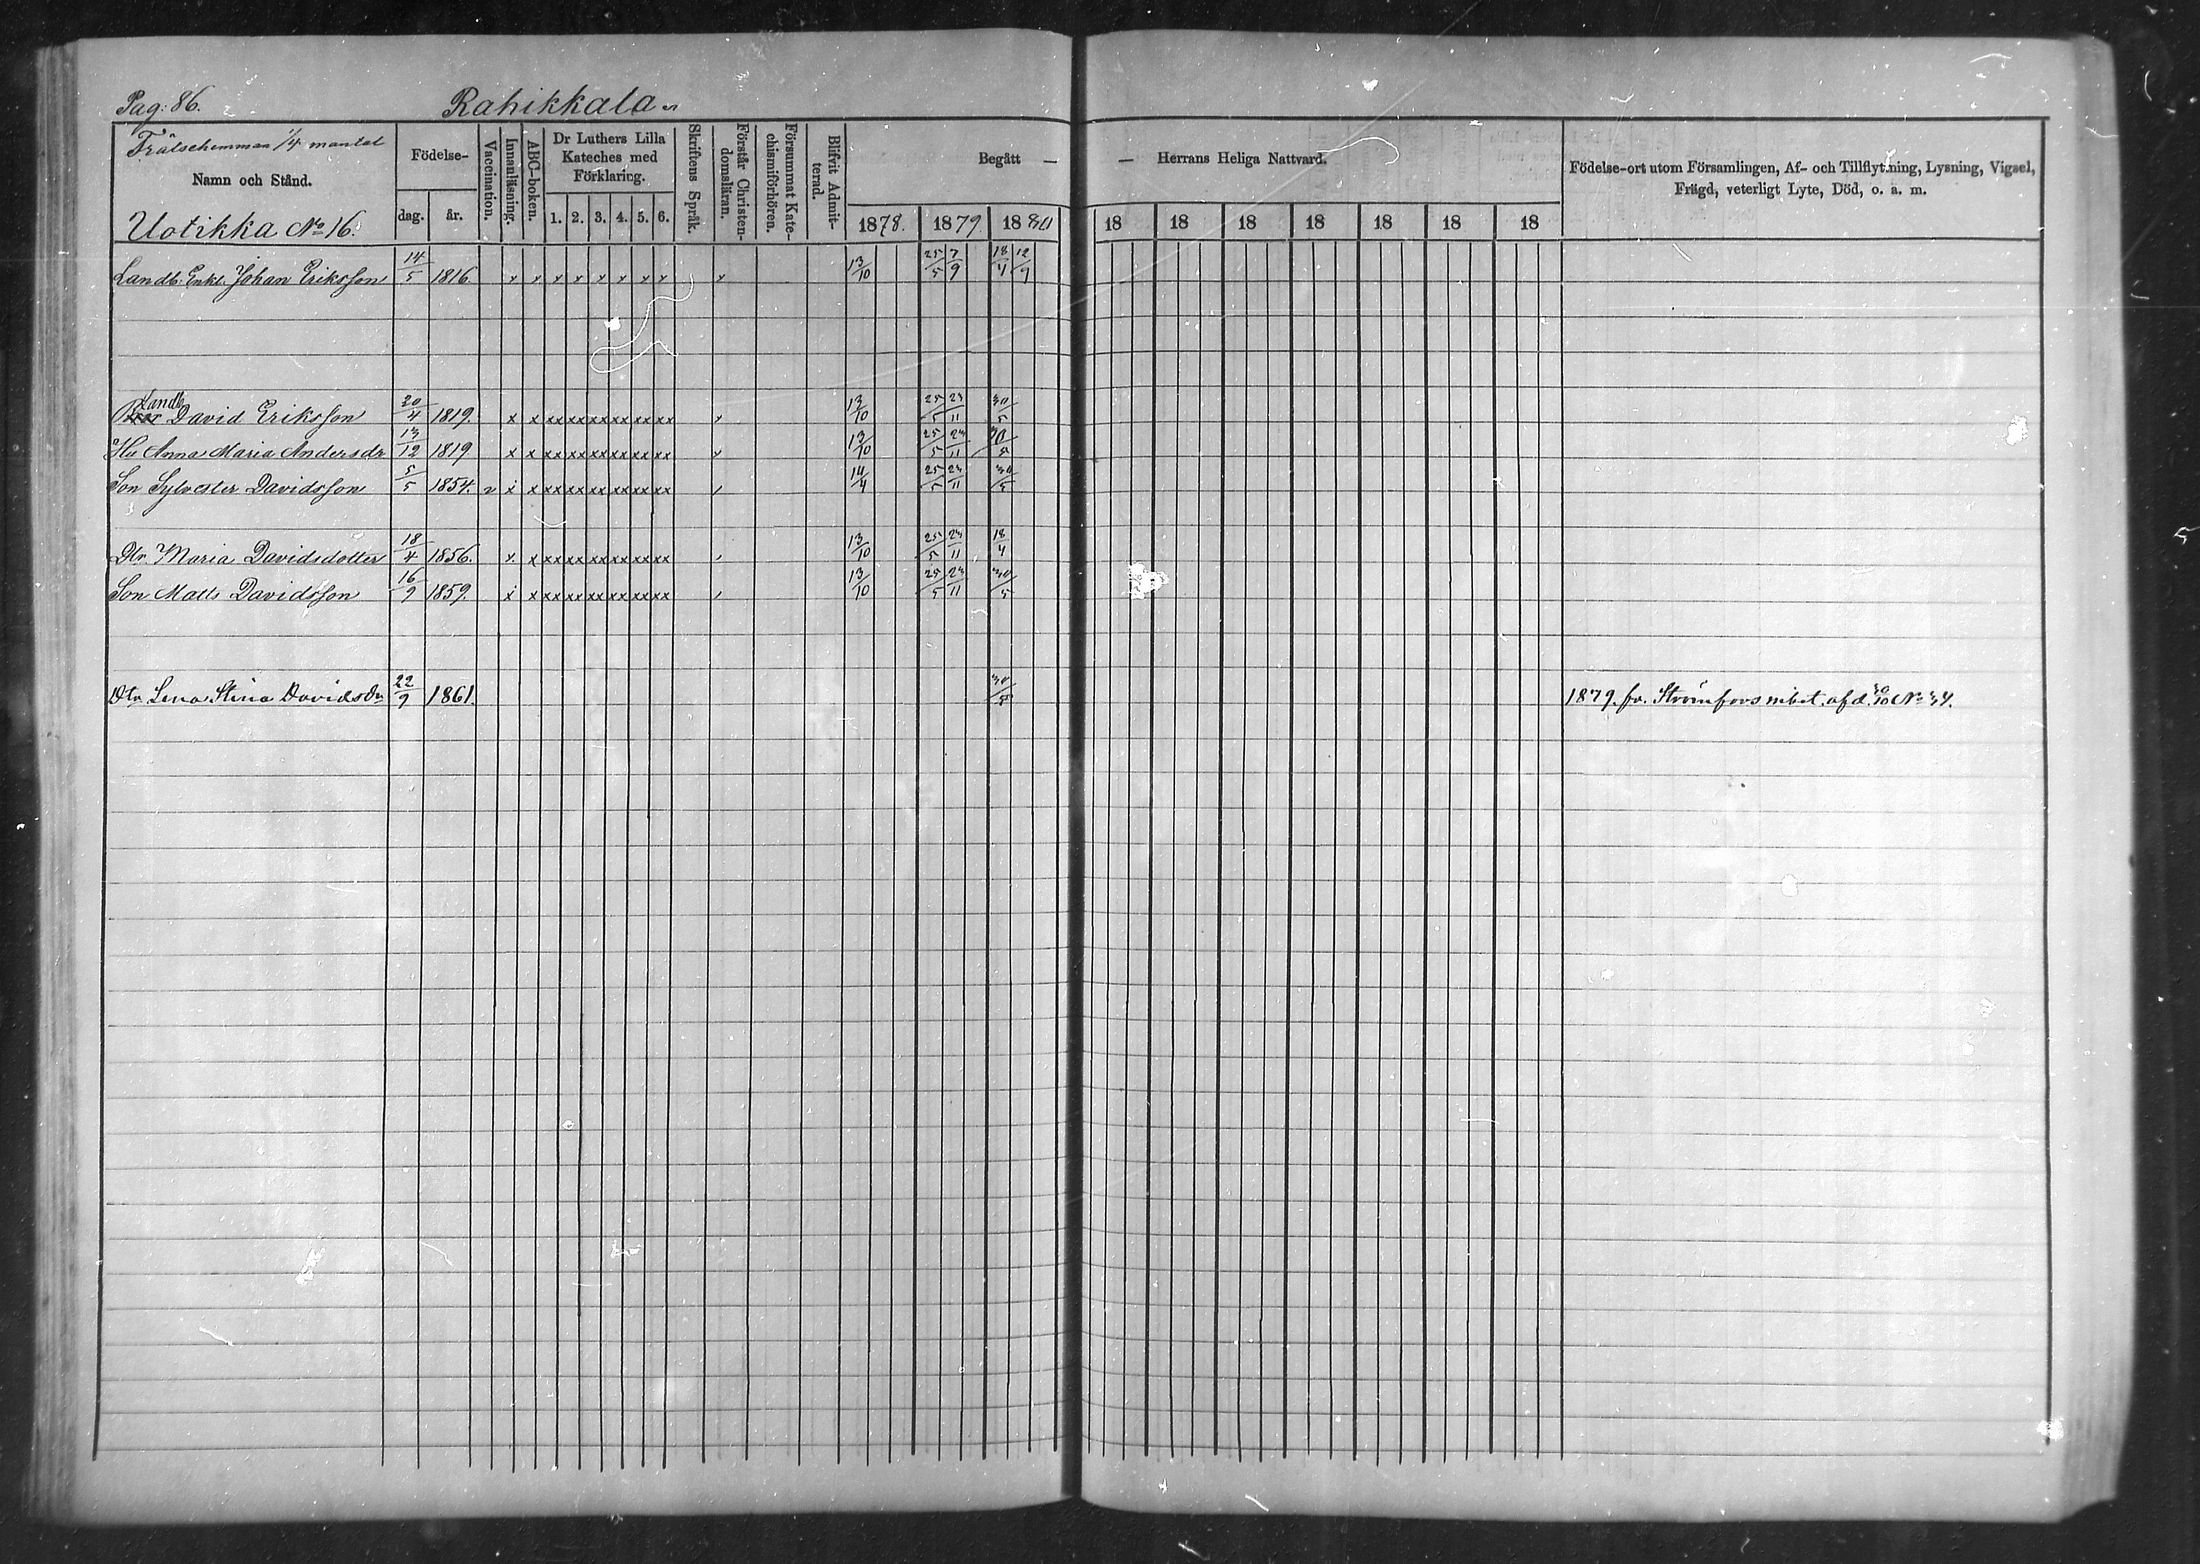 Pag: 86. Rahikkala
Frälsehemman 1/4 mantal
Namn och Stånd.
Uotikka No 16.
Födelse-
dag. år.
Vaccination.
Innanläsning.
ABC-boken.
Dr Luthers Lilla
Kateches med
Förklaring.
1. 2. 3. 4. 5. 6.
Skriftens Språk.
Förstår Christen-
domsläran.
Försummat Kate-
chismiförhören.
Blifvit Admit-
terad.
Begått — — Herrans Heliga Nattvard.
1878. 1879. 1880 18 18 18 18 18 18 18
Födelse-ort utom Församlingen, Af- och Tillflyttning, Lysning, Vigsel,
Frägd, veterligt Lyte, Död, o. a. m.
Landb. Enkl. Johan Eriksson 14/5 1816. x x x x x x x x 13/10 25/5 7/9 18/4 12/9
Landb. David Eriksson 20/4 1819. x x xx xx xx xx xx xx 13/10 25/5 23/11 30/5
Hu Anna Maria Andersdr 13/12 1819 x x xx xx xx xx xx xx 13/10 25/5 23/11 30/5
Son Sylvester Davidsson 5/5 1854. v x x xx xx xx xx xx xx 14/4 25/5 23/11 30/5
Dtr Maria Davidsdotter 18/4 1856. x x xx xx xx xx xx xx 13/10 25/5 23/11 18/4
Son Matts Davidsson 16/9 1859. x x xx xx xx xx xx xx 13/10 25/5 23/11 30/5
Dtr Lena Stina Davidsdr 22/9 1861. 30/5 1879. fr. Strömfors m bet. af d. 30/10 No 34.